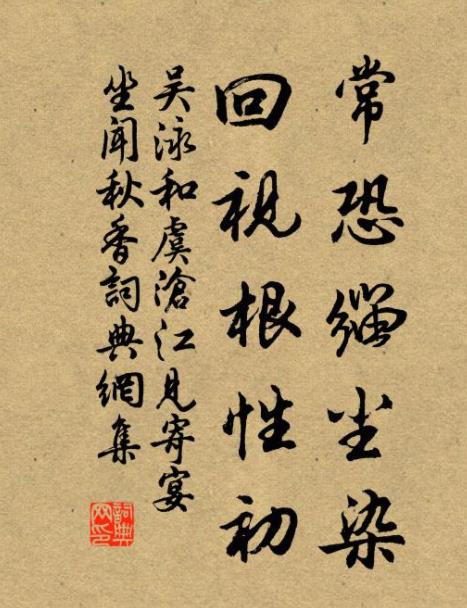 常恐缁尘染
回視根性初
吴泳和虞滄江见寄宴
坐闻秋香詞典網集
詞典网印